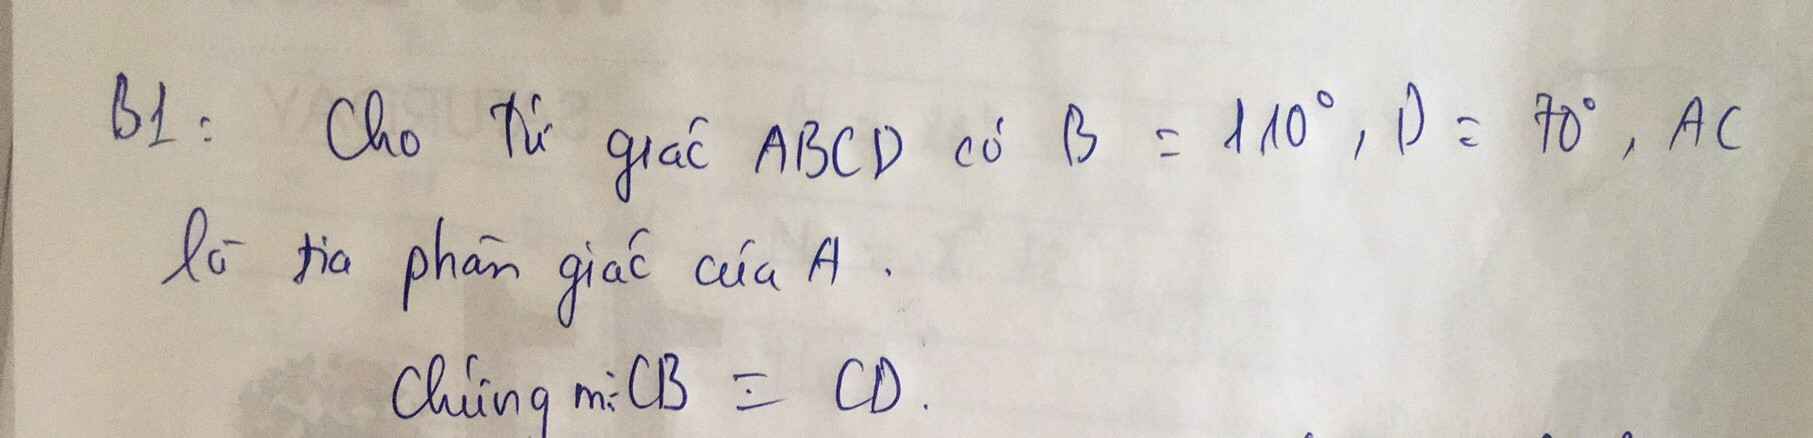 B1: Cho tứ giác ABCD có B = 110°, D = 70°, AC
là tia phân giác của A.
Chứng m: CB = CD.